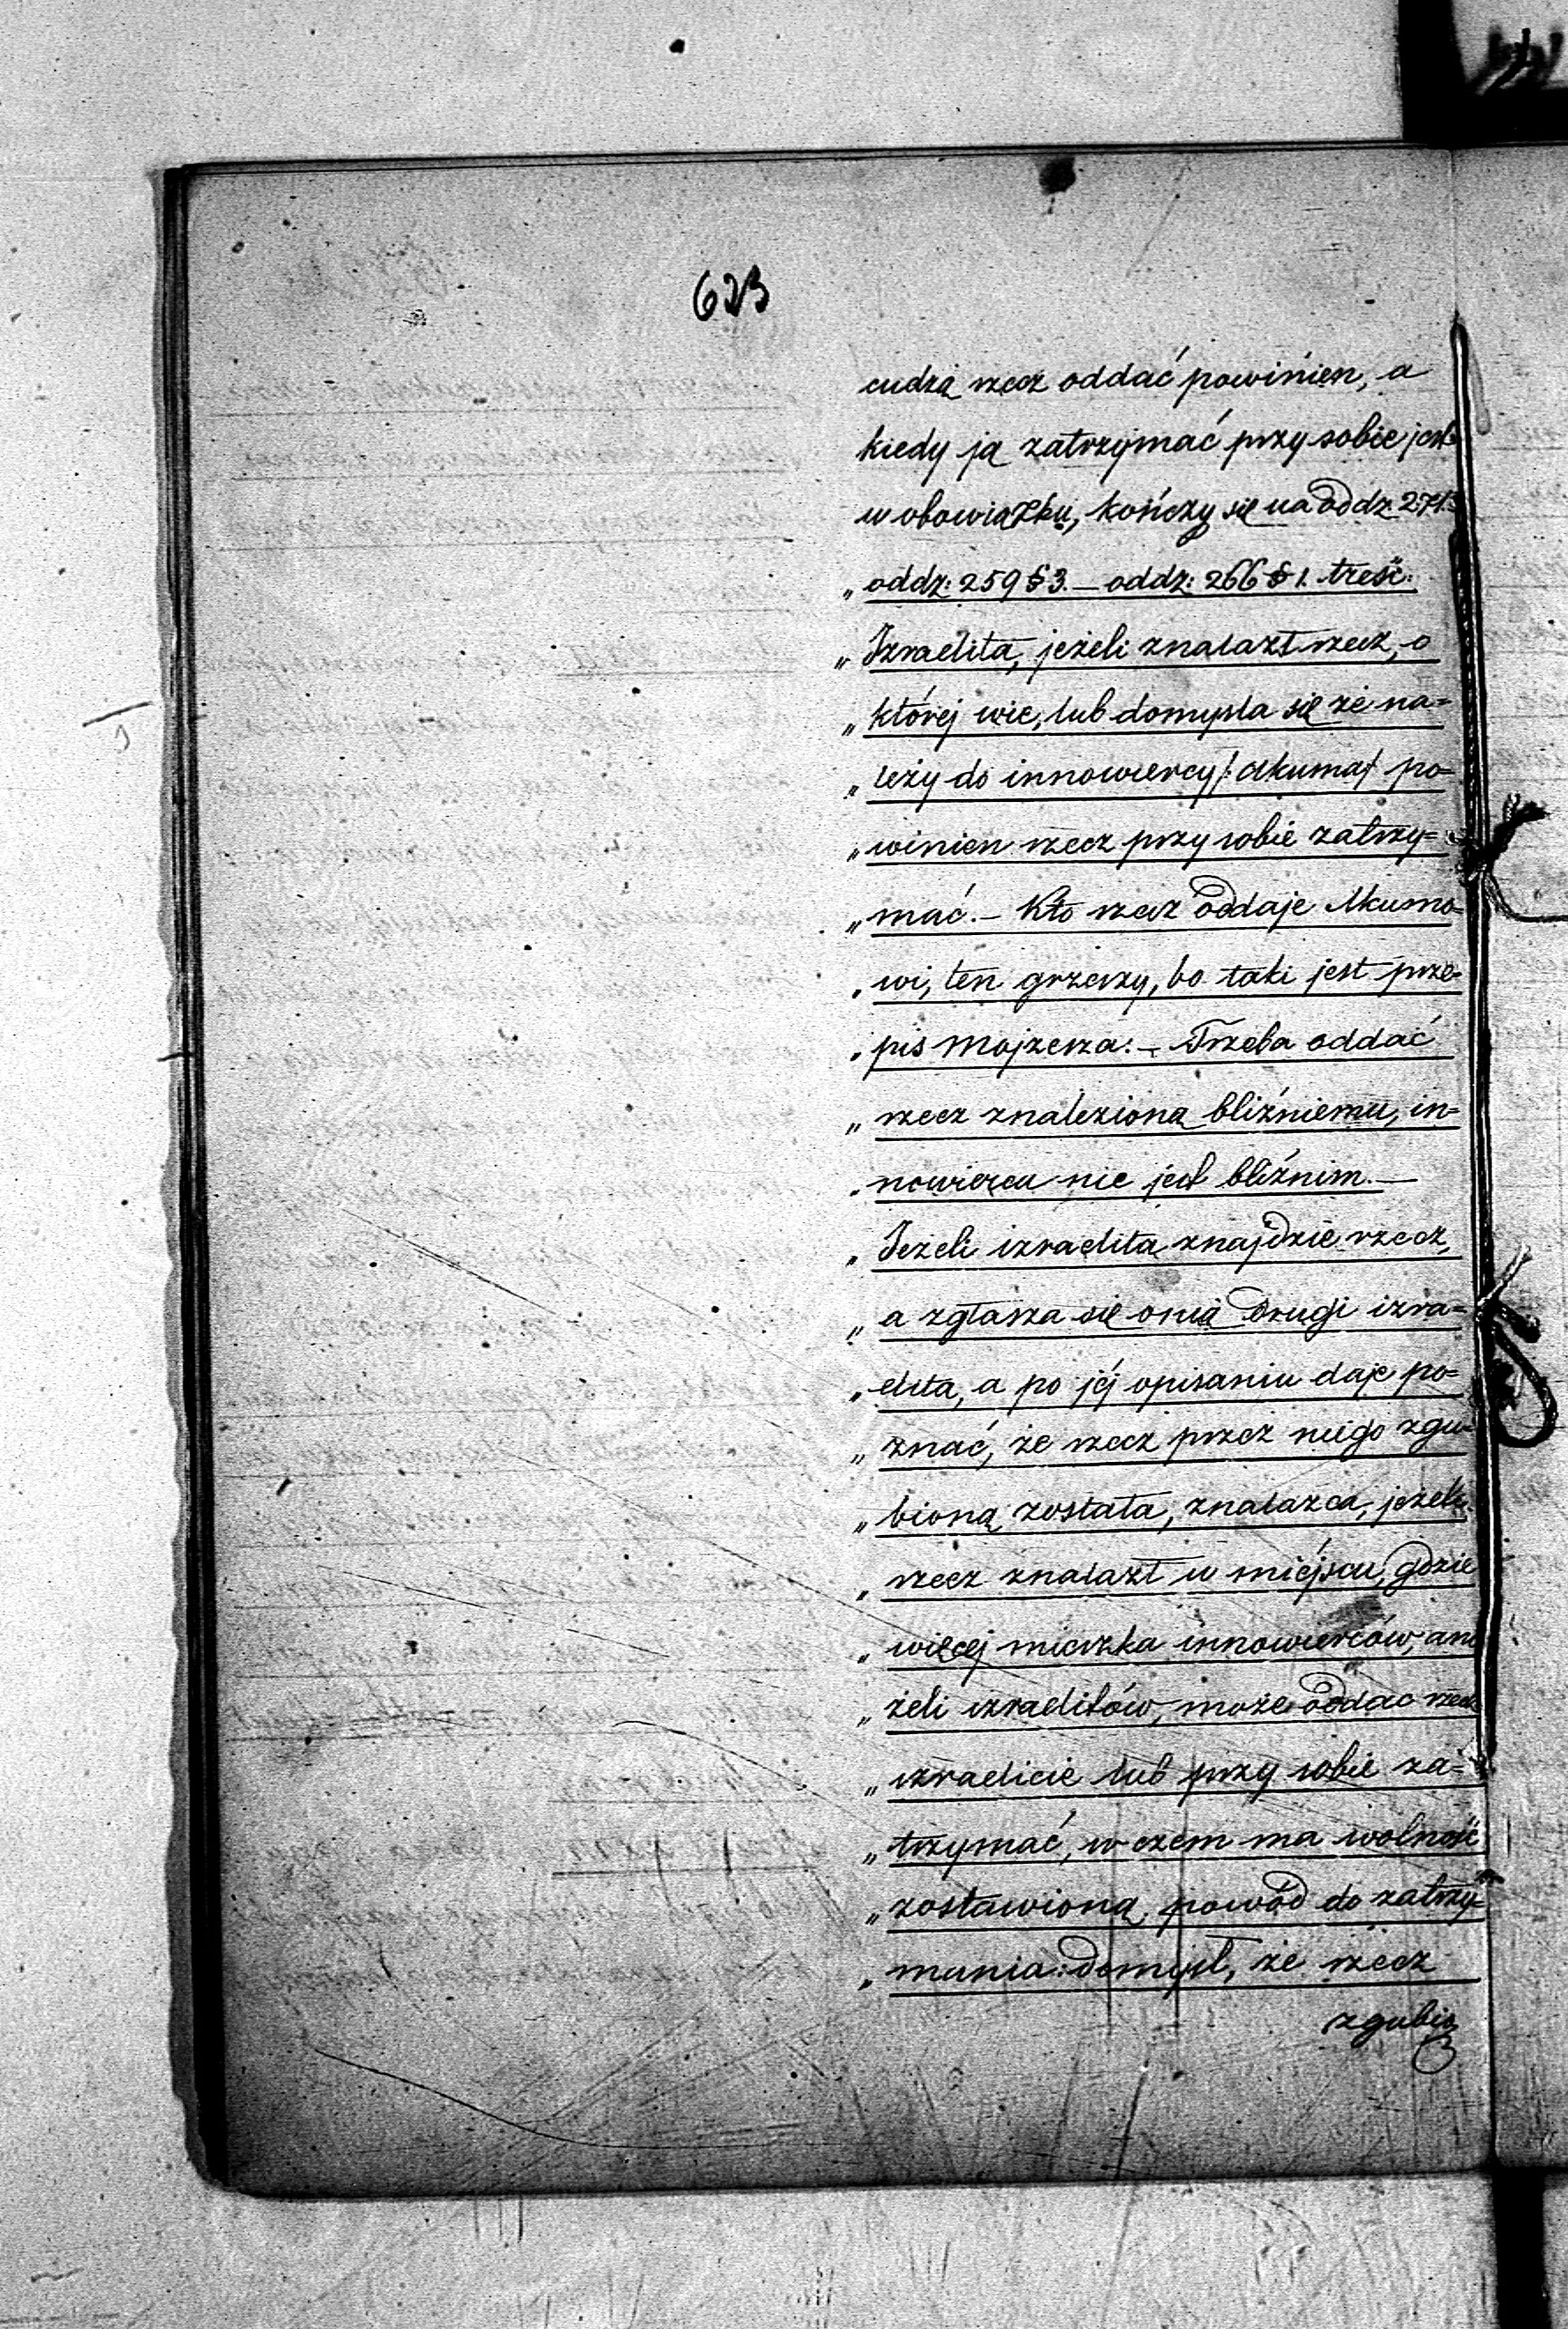 623
cudzą rzecz oddać powinien, a
kiedy ją zatrzymać przy sobie jest
w obowiązku, kończy się na oddz. 271.
„ oddz: 259 § 3. — oddz: 266 § 1. treść:
„ Izraelita, jeżeli znalazł rzecz, o
„ której wie, lub domyśla się że na=
„ leży do innowiercy /: Akuma/ po=
„ winien rzecz przy sobie zatrzy=
„ mać. — Kto rzecz oddaje Akumo=
„ wi, ten grzeszy, bo taki jest prze=
„ pis Mojżesza: — Trzeba oddać
„ rzecz znalezioną bliźniemu, in=
„ nowierca nie jest bliźnim. —
„ Jeżeli izraelita znajdzie rzecz,
„ a zgłasza się o nią drugi izra=
„ elita, a po jéj opisaniu daje po=
„ znać, że rzecz przez niego zgu=
„ bioną została, znalazca, jeżeli
„ rzecz znalazł w miéjscu, gdzie
„ więcéj mieszka innowierców, ani
„ żeli izraelitów, może oddac rzecz
„ izraelicie lub przy sobie za=
„ trzymać, w czem ma wolność
„ zostawioną, powód do zatrzy=
„ mania: domysł, że rzecz
zgubio